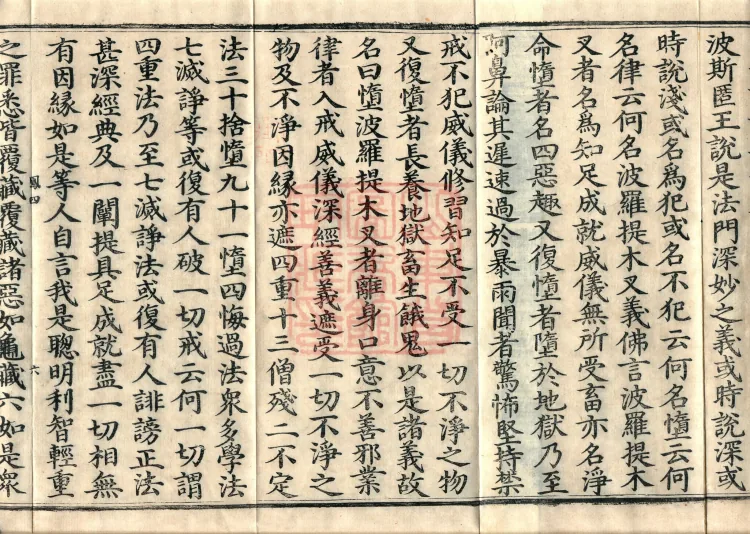 波斯匿王說是法門深妙之義或時說深或
時說淺或名為犯或名不犯云何名墮云何
名律云何名波羅提木叉義佛言波羅提木
叉者名為知足成就威儀無所受畜亦名淨
命墮者名四惡趣又復墮者墮於地獄乃至
阿鼻論其遲速過於暴雨聞者驚怖堅持禁
戒不犯威儀修習知足不受一切不淨之物
又復墮者長養地獄畜生餓鬼以是諸義故
名曰墮波羅提木叉者離身口意不善邪業
律者入戒威儀深經善義遮受一切不淨之
物及不淨因緣亦遮四重十三僧殘二不定
法三十捨墮九十一墮四悔過法眾多學法
七滅諍等或復有人破一切戒云何一切謂
四重法乃至七滅諍法或復有人誹謗正法
甚深經典及一闡提具足成就盡一切相無
有因緣如是等人自言我是聰明利智輕重
鳳四
六
之罪悉皆覆藏覆藏諸惡如龜藏六如是眾